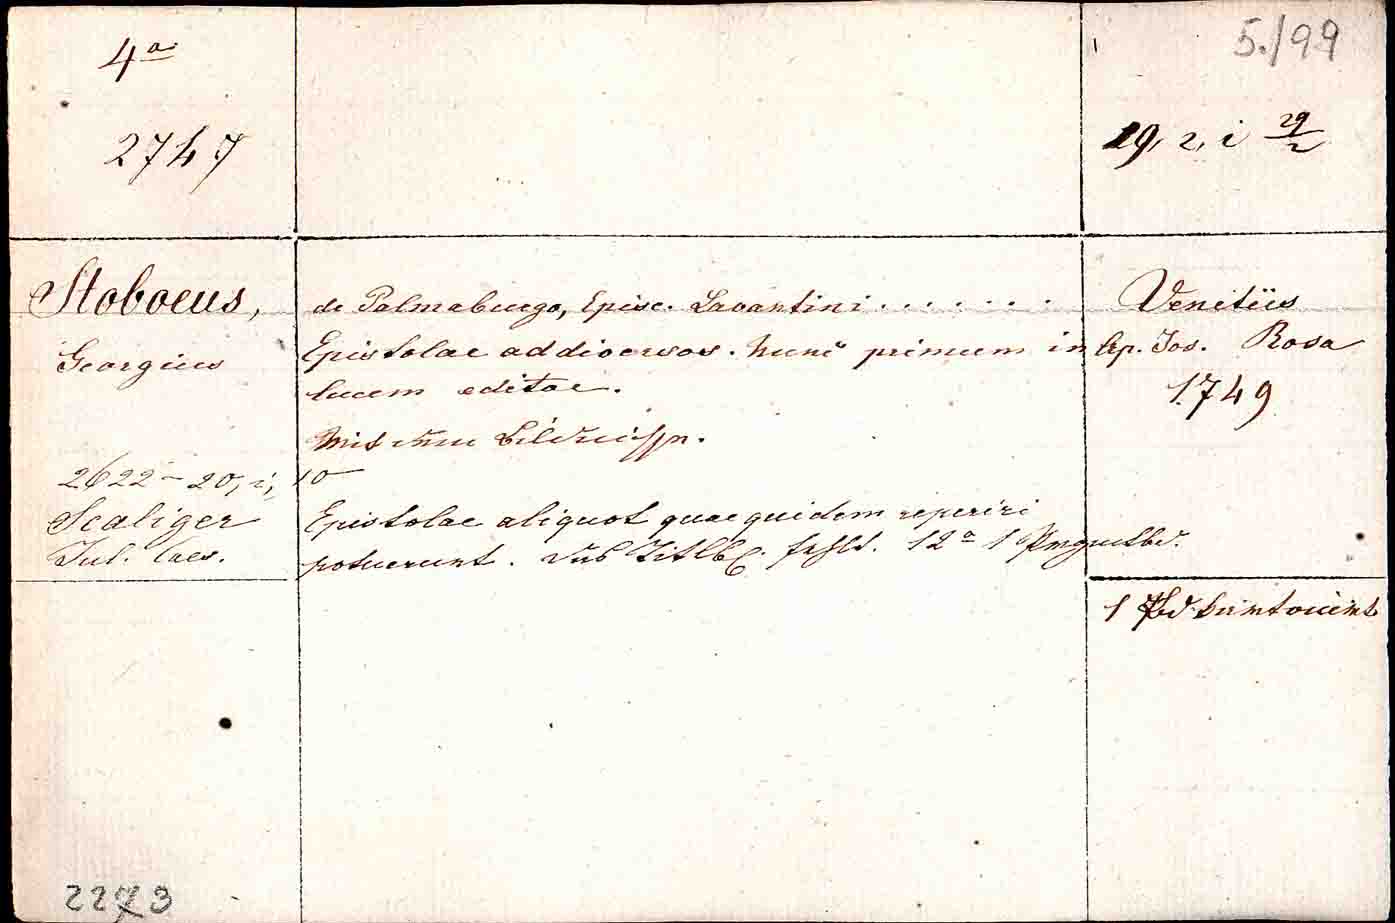 4a
2747
5./99
29, 2, i 29/2
Stoboeus,
Georgius
de Palmaburgo, Episc. Lavantini . . . . . . .
Epistolae ad diversos. Nunc primum in
lucem editae.
Mit einem Bildnisse.
Venetiis
Ap. Jos. Rosa
1749
2622 - 20, i, 10
Scaliger
Jul. Caes.
Epistolae aliquot quae quidem reperiri
potuerunt. Das Titlbl. fehlt. 12a 1 Prgmtbd.
1 Pbd
2273